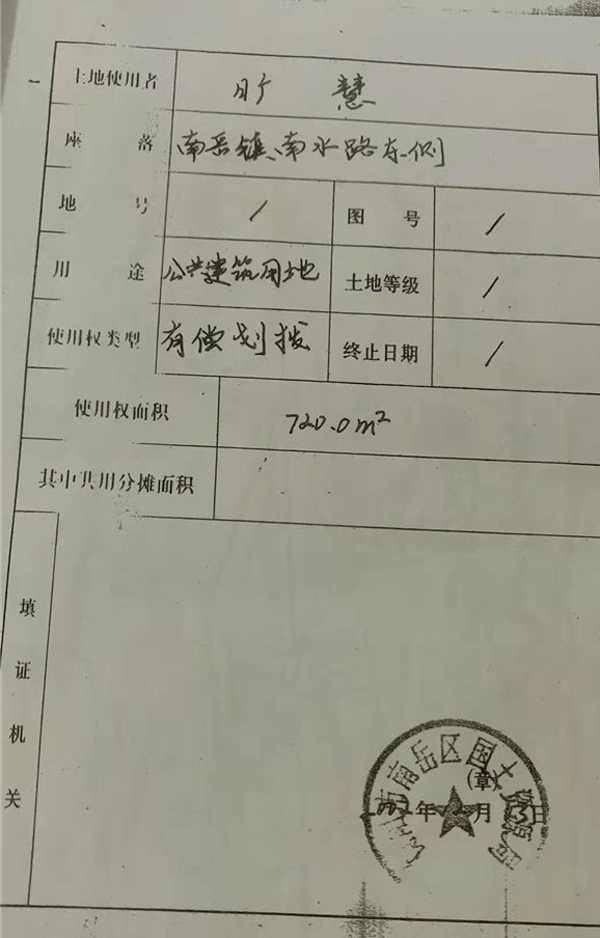 土地使用者 旷 慧
座 落 南岳镇、南水路东侧
地 号 / 图 号 /
用 途 公共建筑用地 土地等级 /
使用权类型 有偿划拨 终止日期 /
使用权面积 720.0m²
其中共用分摊面积
填证机关
市南岳区国土资源局
(章)
年 月 日